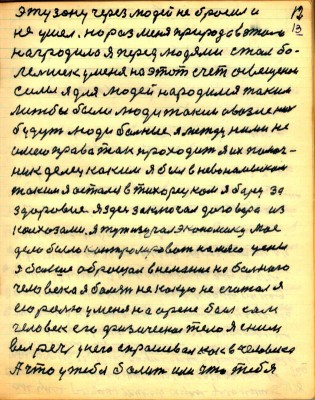 эту зону через людей не бросил и 12
не ушел. но раз меня природа в этом 13
наградила я перед людями стал бо-
лен и у меня на этот счет
силы я для людей народился таким
были люди таким а возле них
будут люди больные я между ними не
имею права так проходить я их помощ-
ник делец каким я был
таким я остался в тихорецком я борец за
здоровье. я здесь заключал договора из
колхозами. я тут изучал экономику мое
дело было контролировать на мясо цены
я больше обращал внимание на больного
человека я болезни не какую не считал я
ролю у меня на арене был сам
человек его физическое тело я с ним
вел речь у него спрашивал как в человека
А что у тебя болит или что тебя